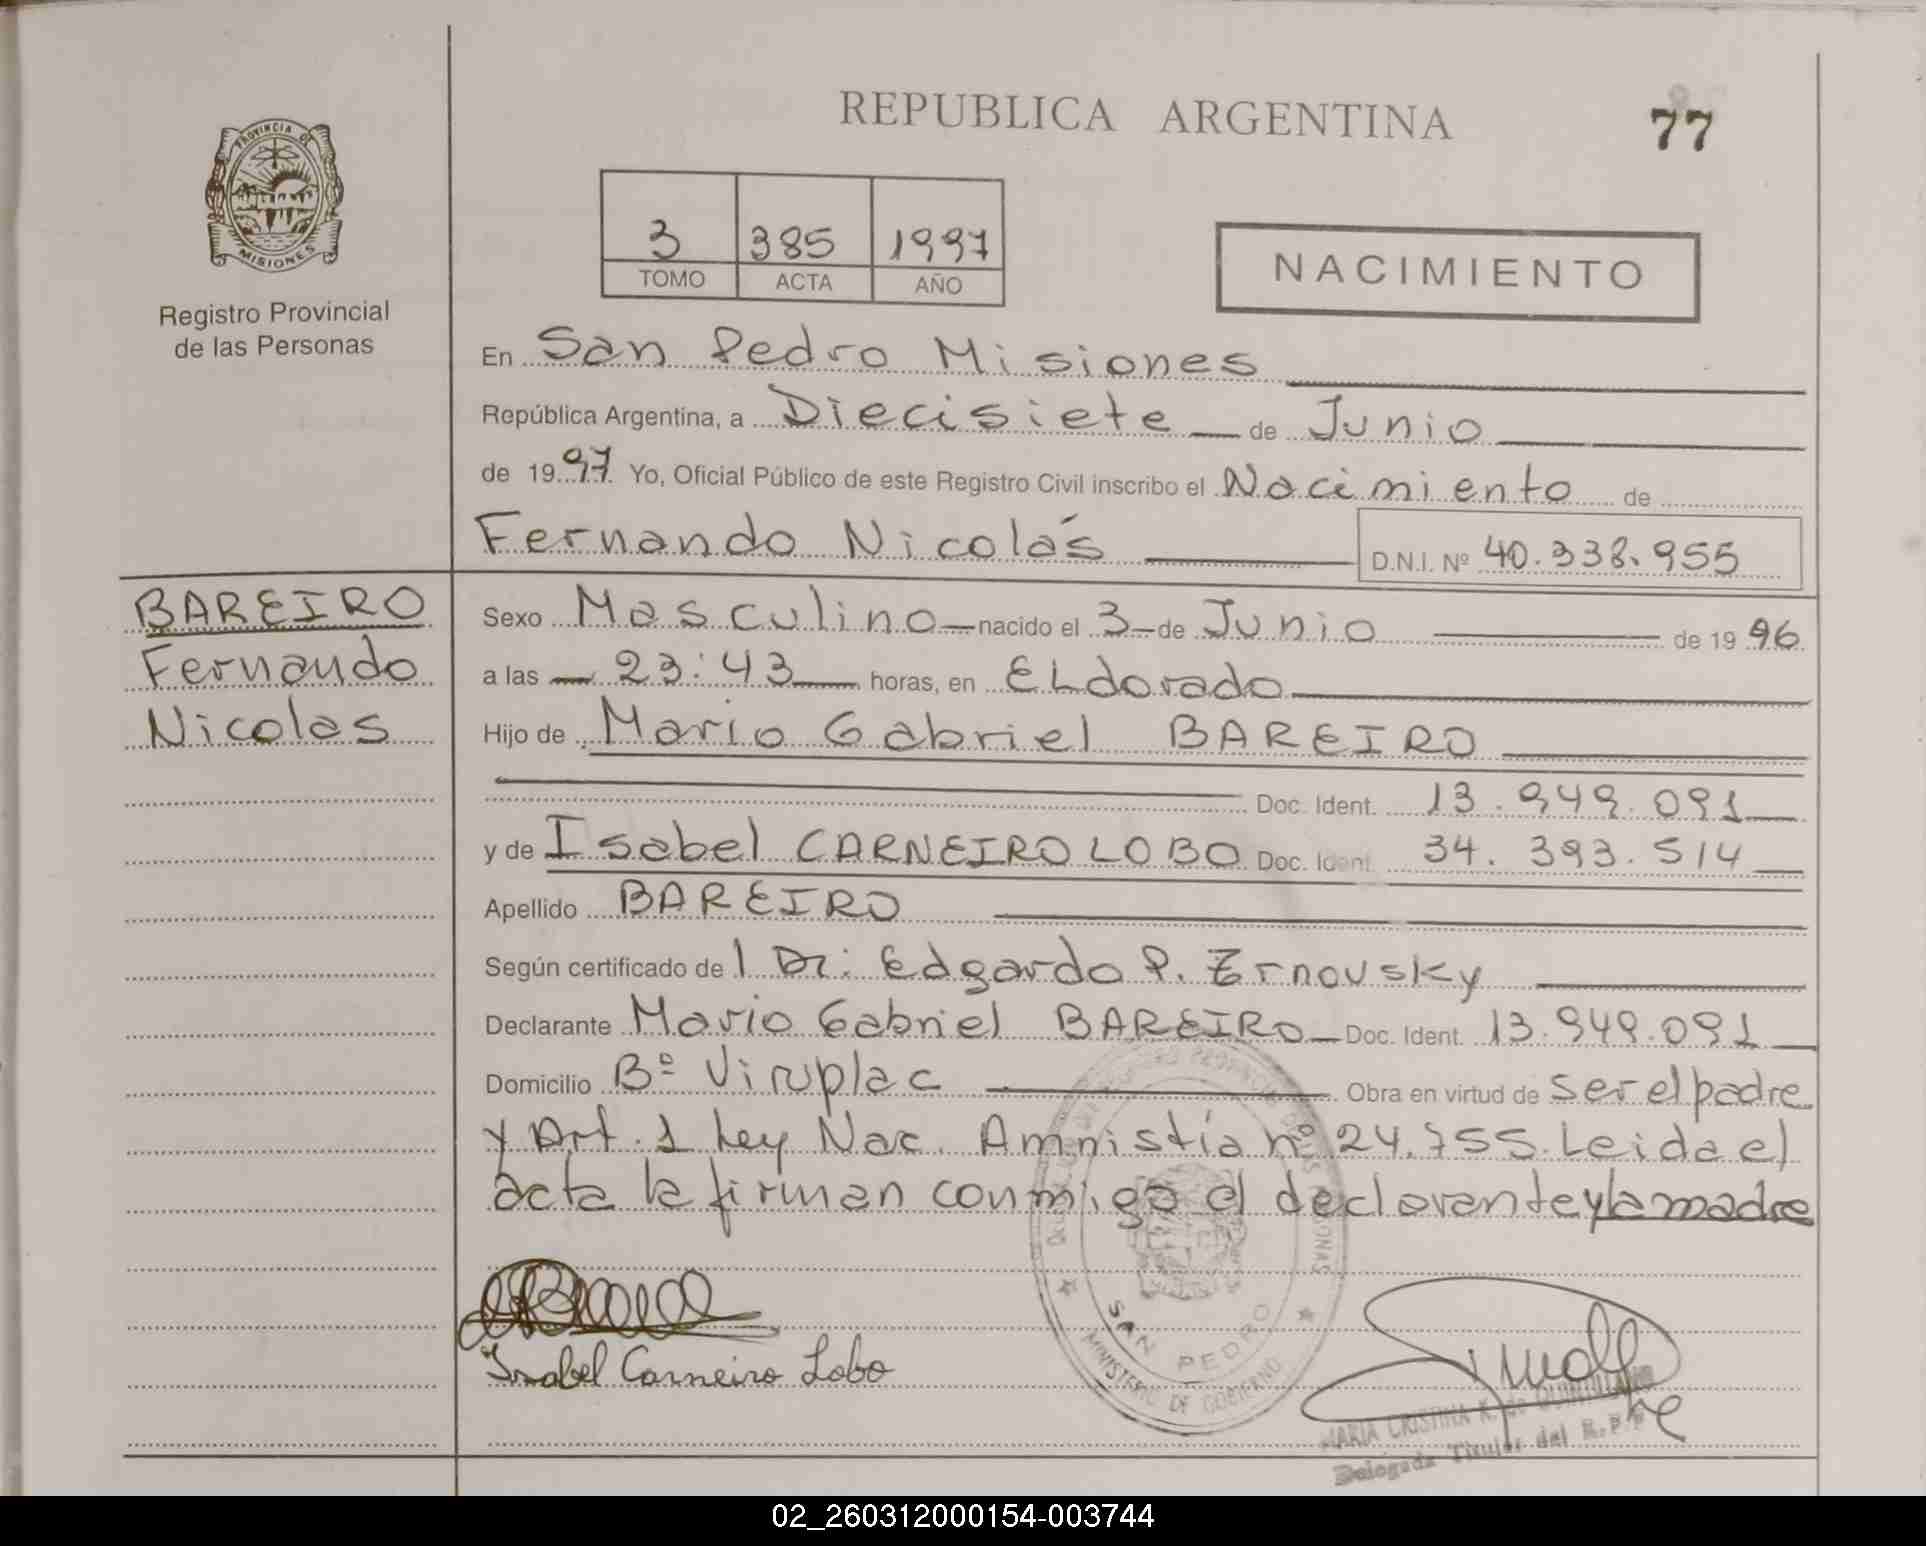 REPUBLICA ARGENTINA
77
PROVINCIA DE
MISIONES
Registro Provincial
de las Personas
3 385 1997
TOMO ACTA AÑO
NACIMIENTO
En San Pedro Misiones
República Argentina, a Diecisiete de Junio
de 1997 Yo, Oficial Público de este Registro Civil inscribo el Nacimiento de
Fernando Nicolás D.N.I. Nº 40.338.955
BAREIRO
Fernando
Nicolas
Sexo Masculino nacido el 3 de Junio de 1996
a las 23:43 horas, en ELdorado
Hijo de Mario Gabriel BAREIRO
Doc. Ident. 13.949.091
y de Isabel CARNEIRO LOBO Doc. Ident. 34.393.514
Apellido BAREIRO
Según certificado de l Dr: Edgardo P. Zrnovsky
Declarante Mario Gabriel BAREIRO Doc. Ident. 13.949.091
Domicilio Bº Viruplac Obra en virtud de ser el padre
y Art. 1 Ley Nac. Amnistía nº 24.755. Leida el
acta la firman conmigo el declarante y la madre
Isabel Carneiro Lobo
SAN PEDRO
MINISTERIO DE GOBIERNO
MARIA CRISTINA K. de
Delegada Titular del R.P.P
02_260312000154-003744